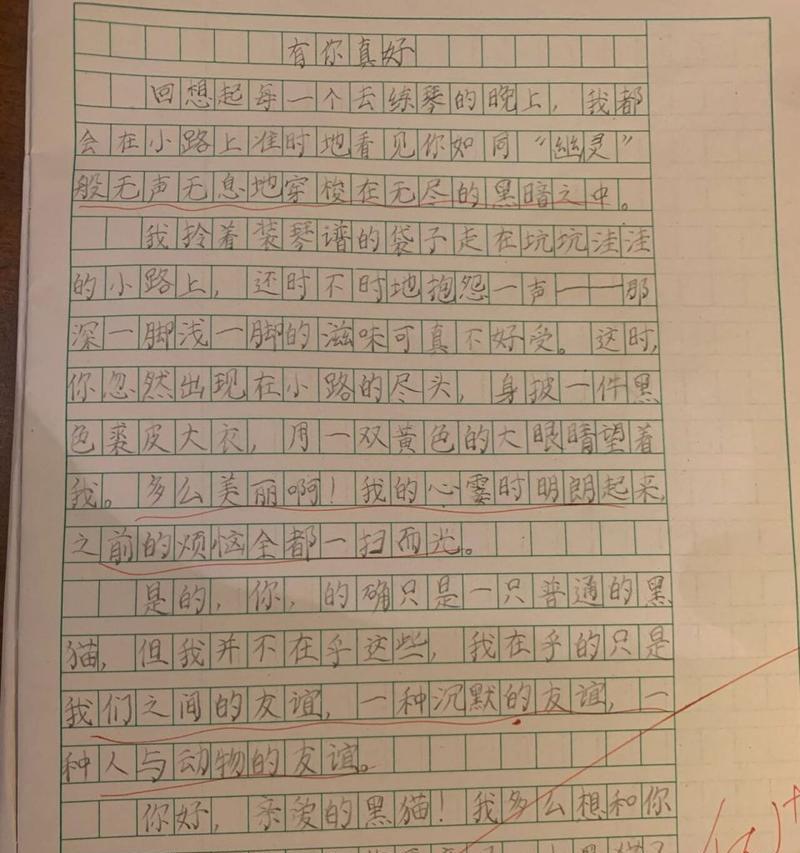 有你真好
回想起每一个去练琴的晚上，我都
会在小路上准时地看见你如同“幽灵”
般无声无息地穿梭在无尽的黑暗之中。
我拎着装琴谱的袋子走在坑坑洼洼
的小路上，还时不时地抱怨一声——那
深一脚浅一脚的滋味可真不好受。这时，
你忽然出现在小路的尽头，身披一件黑
色裘皮大衣，用一双黄色的大眼睛望着
我。多么美丽啊！我的心霎时明朗起来，
之前的烦恼全都一扫而光。
是的，你，的确只是一只普通的黑
猫，但我并不在乎这些，我在乎的只是
我们之间的友谊，一种沉默的友谊，一
种人与动物的友谊。
你好，亲爱的黑猫！我多么想和你